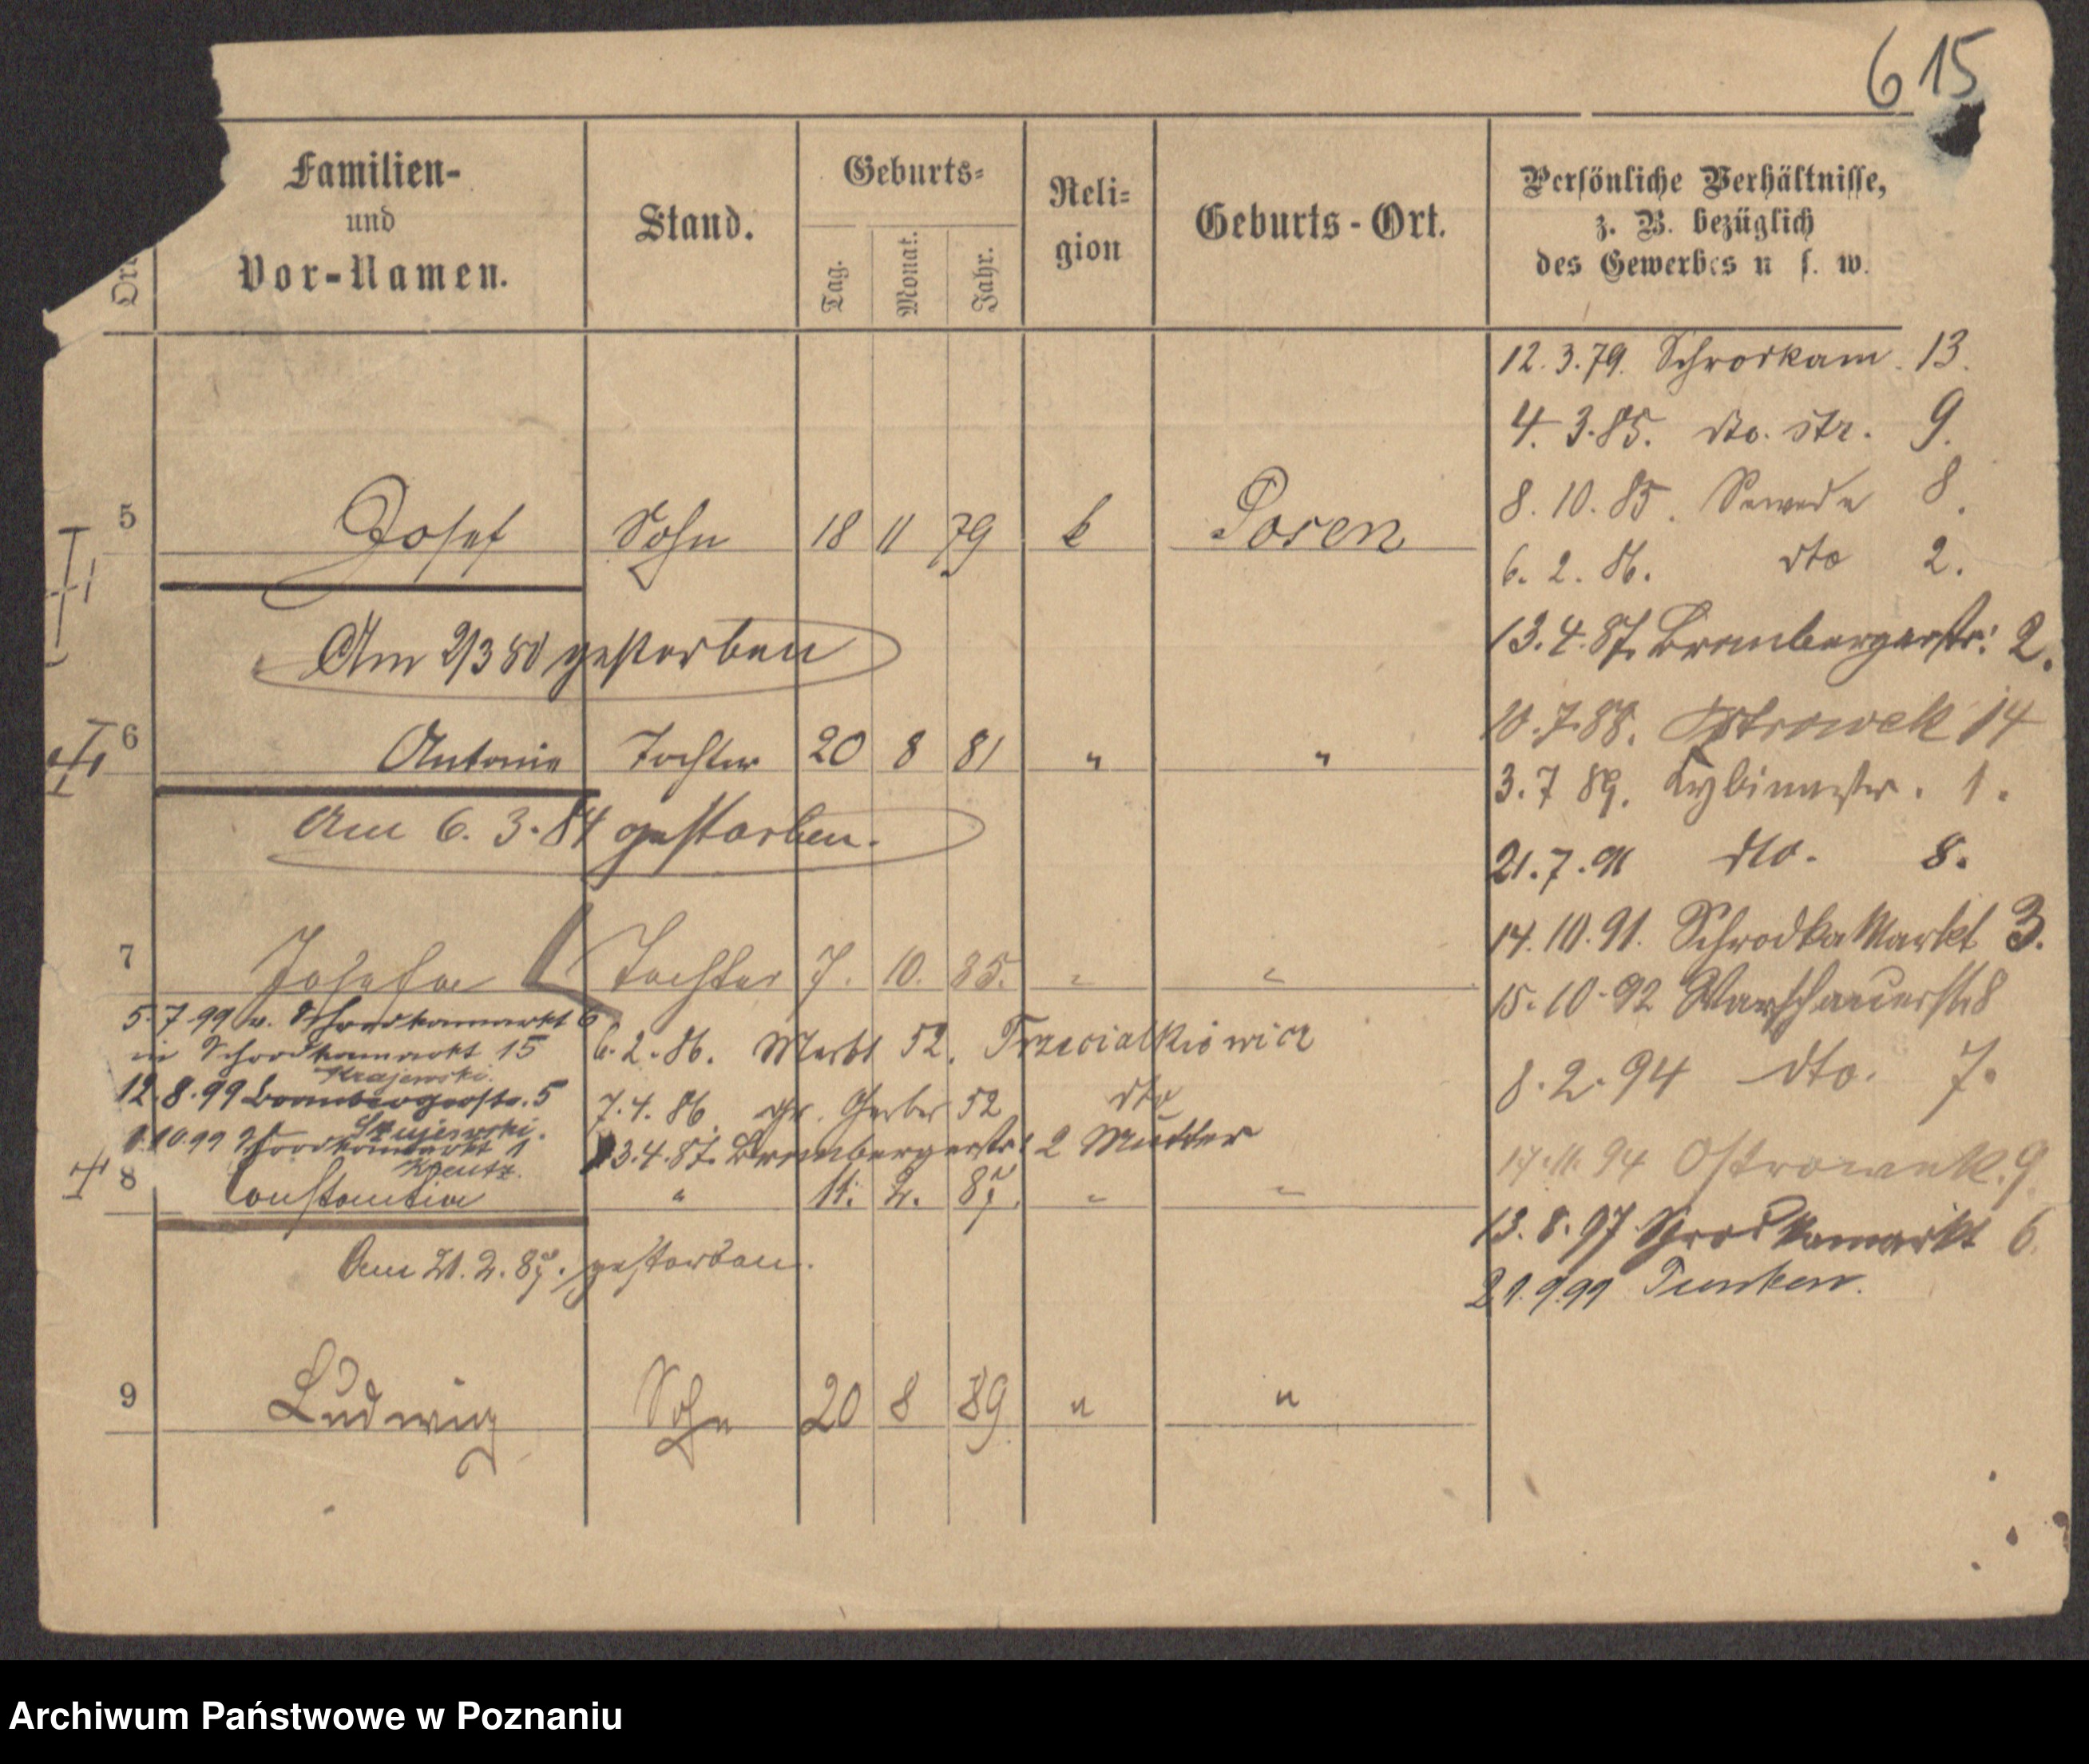 615
Familien-
und
Vor-Namen.
Stand.
Geburts-
Tag.
Monat.
Jahr.
Reli-
gion
Geburts-Ort.
Persönliche Verhältnisse,
z. B. bezüglich
des Gewerbes u s. w.
12.3.79. Schrodkam. 13.
4.3.85. dto. str. 9.
8.10.85. 8.
6.2.86. dto 2.
13.4.87. Brombergerstr: 2.
10.7.88. Ostrowek 14
3.7 89. 1.
21.7.91 dto. 8.
14.10.91. Schrodka Markt 3.
15.10.92 Warschauerstr 8
8.2.94 dto. 7.
17.11.94 Ostrowek. 9.
13.8.97 Schrodkamarkt 6.
21.9.99
5 Josef Sohn 18 11 79 k Posen
Am 2/3 80 gestorben
6 Antonie Tochter 20 8 81 " "
Am 6.3.84 gestorben.
7 Josefa Tochter 7. 10. 85. " "
5.7.99 v. Schrodkamarkt 6
in Schrodkamarkt 15
Krajewski.
12.8.99 Brombergerstr. 5
1.10.99 Schrodkamarkt 1
6.2.86. Markt 52. Trzecialkiewicz
7.4.86. gr. Gerber 52 dto
13.4.87. Brombergerstr: 2 Mutter
8 Constantia " 11. 2. 87. " "
Am 21.2.87. gestorben.
9 Ludwig Sohn 20 8 89 " "
Archiwum Państwowe w Poznaniu